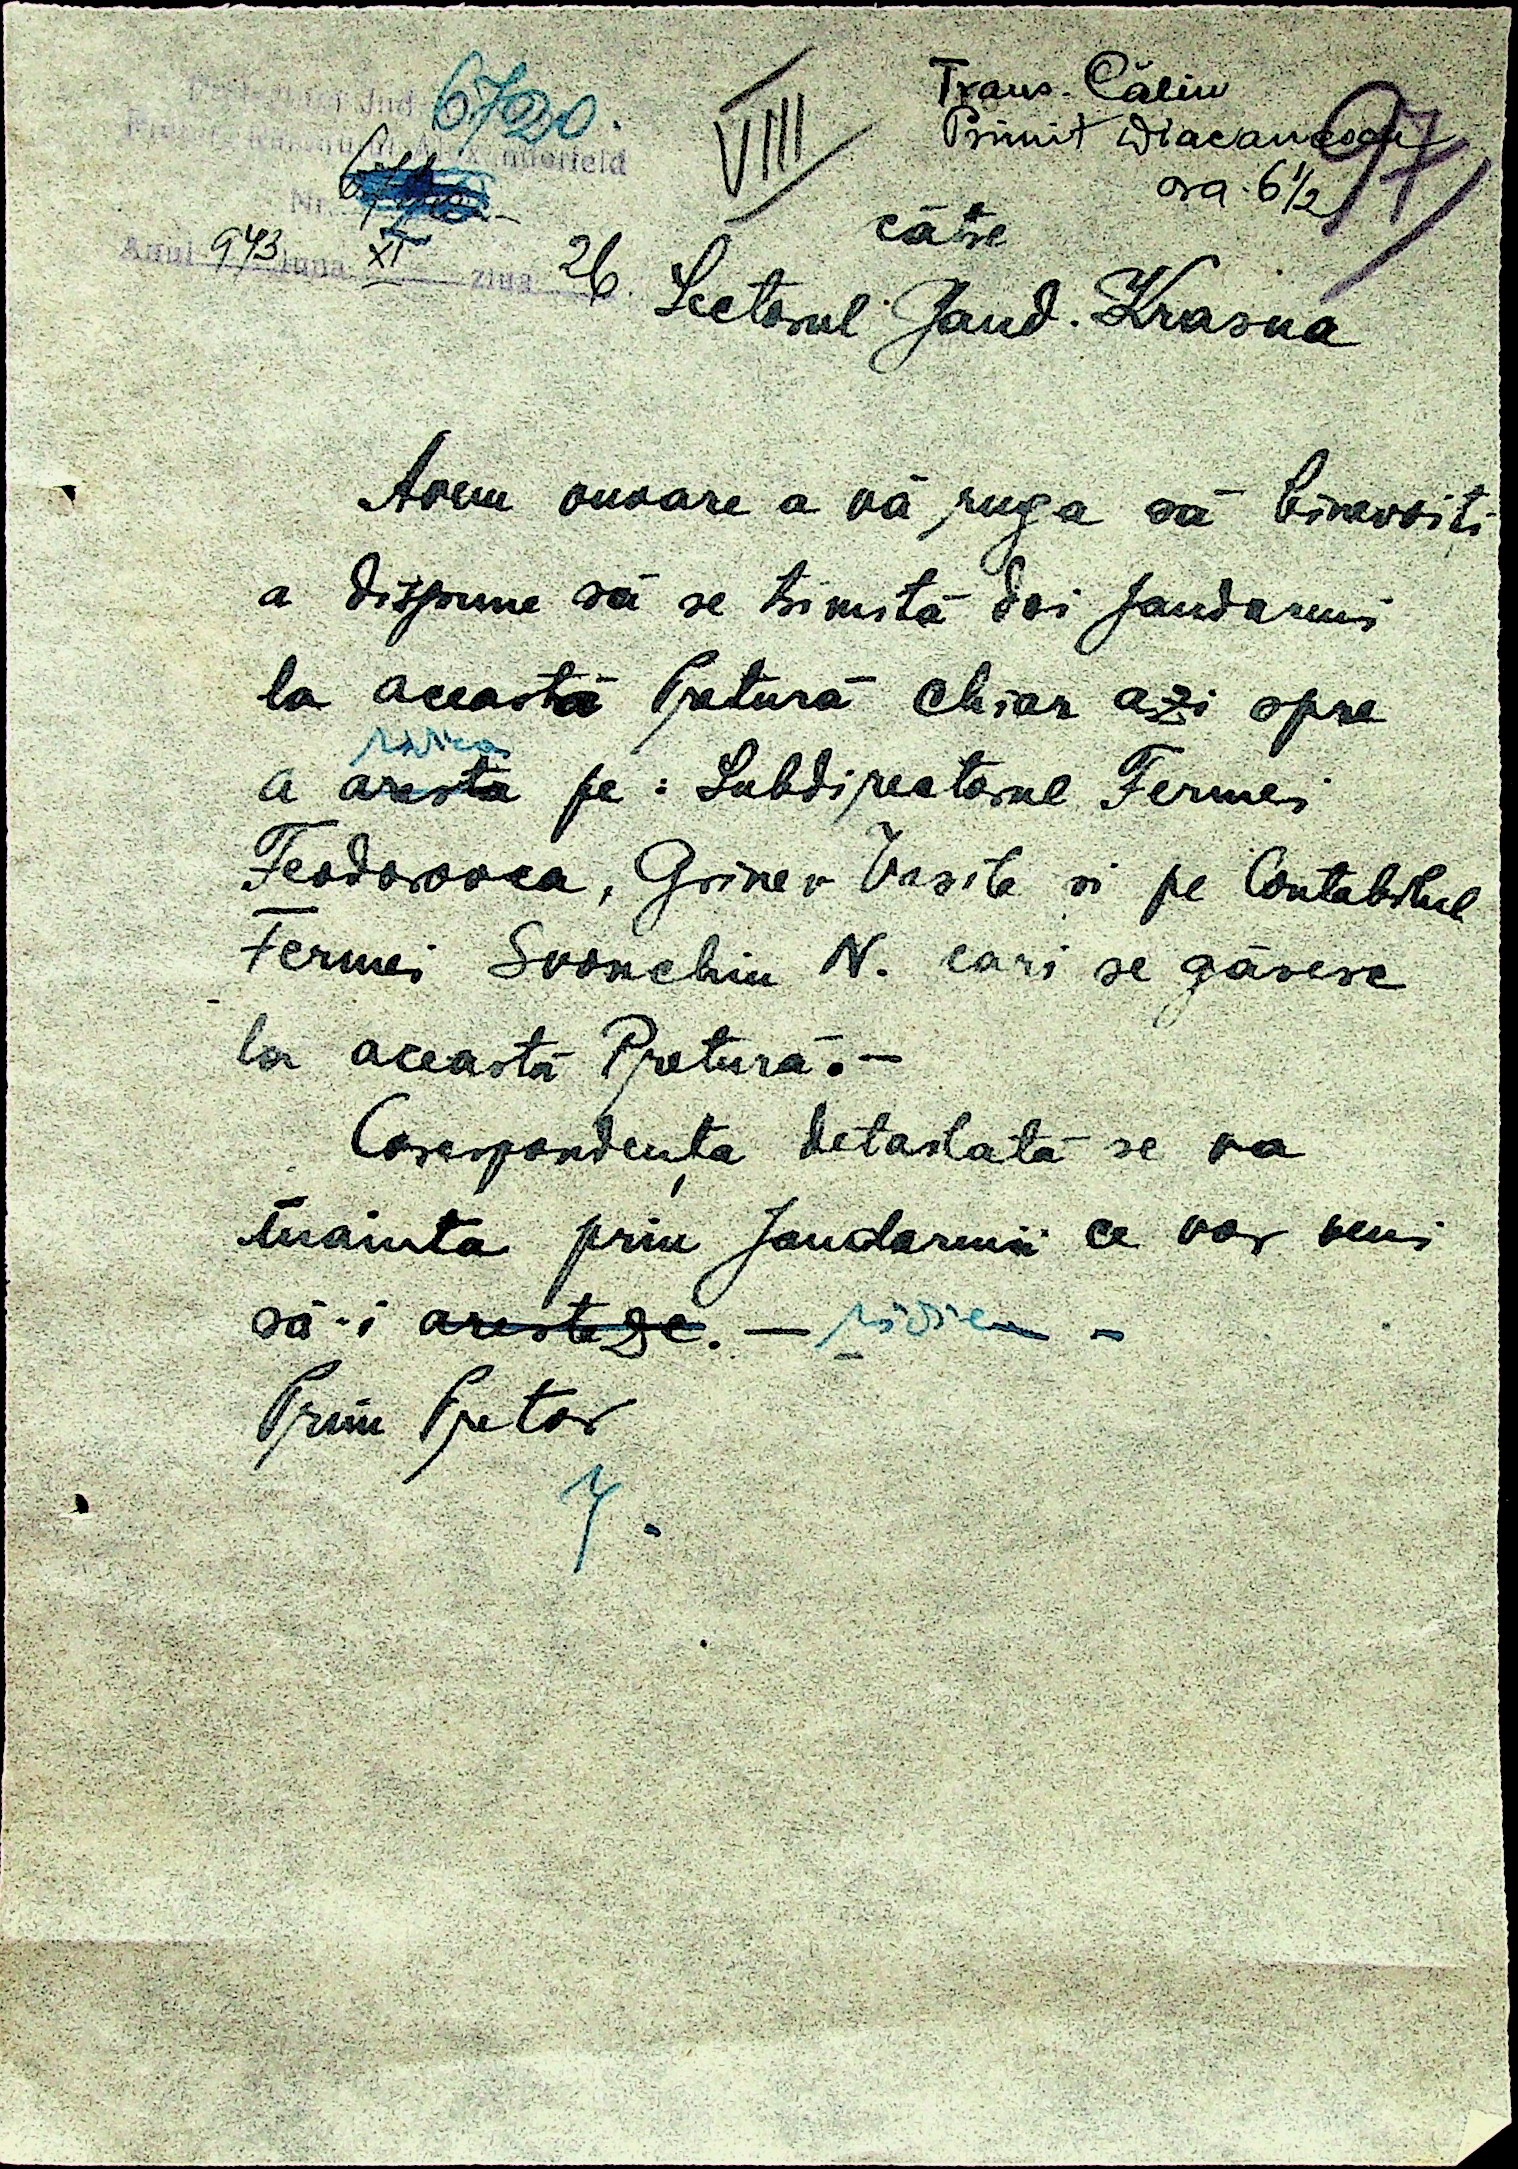 6720.
VIII
Trans. Călin
Primit Diacanescu
ora 6 1/2
97
Nr.
Anul 943 luna XI ziua 26
către
Sectorul Jand. Krasna
Avem onoare a vă ruga să binevoiți
a dispune să se trimită doi jandarmi
la această Pretură chiar azi spre
ridica
a aresta pe : Subdirectorul Fermei
Feodorovca, Grinev Vasile si pe Contabilul
Fermei Svonchin N. cari se găsesc
la această Pretură.-
Corespondența detailată se va
înainta prin jandarmii ce vor veni
să-i aresteze. — ridice -
Prim Pretor